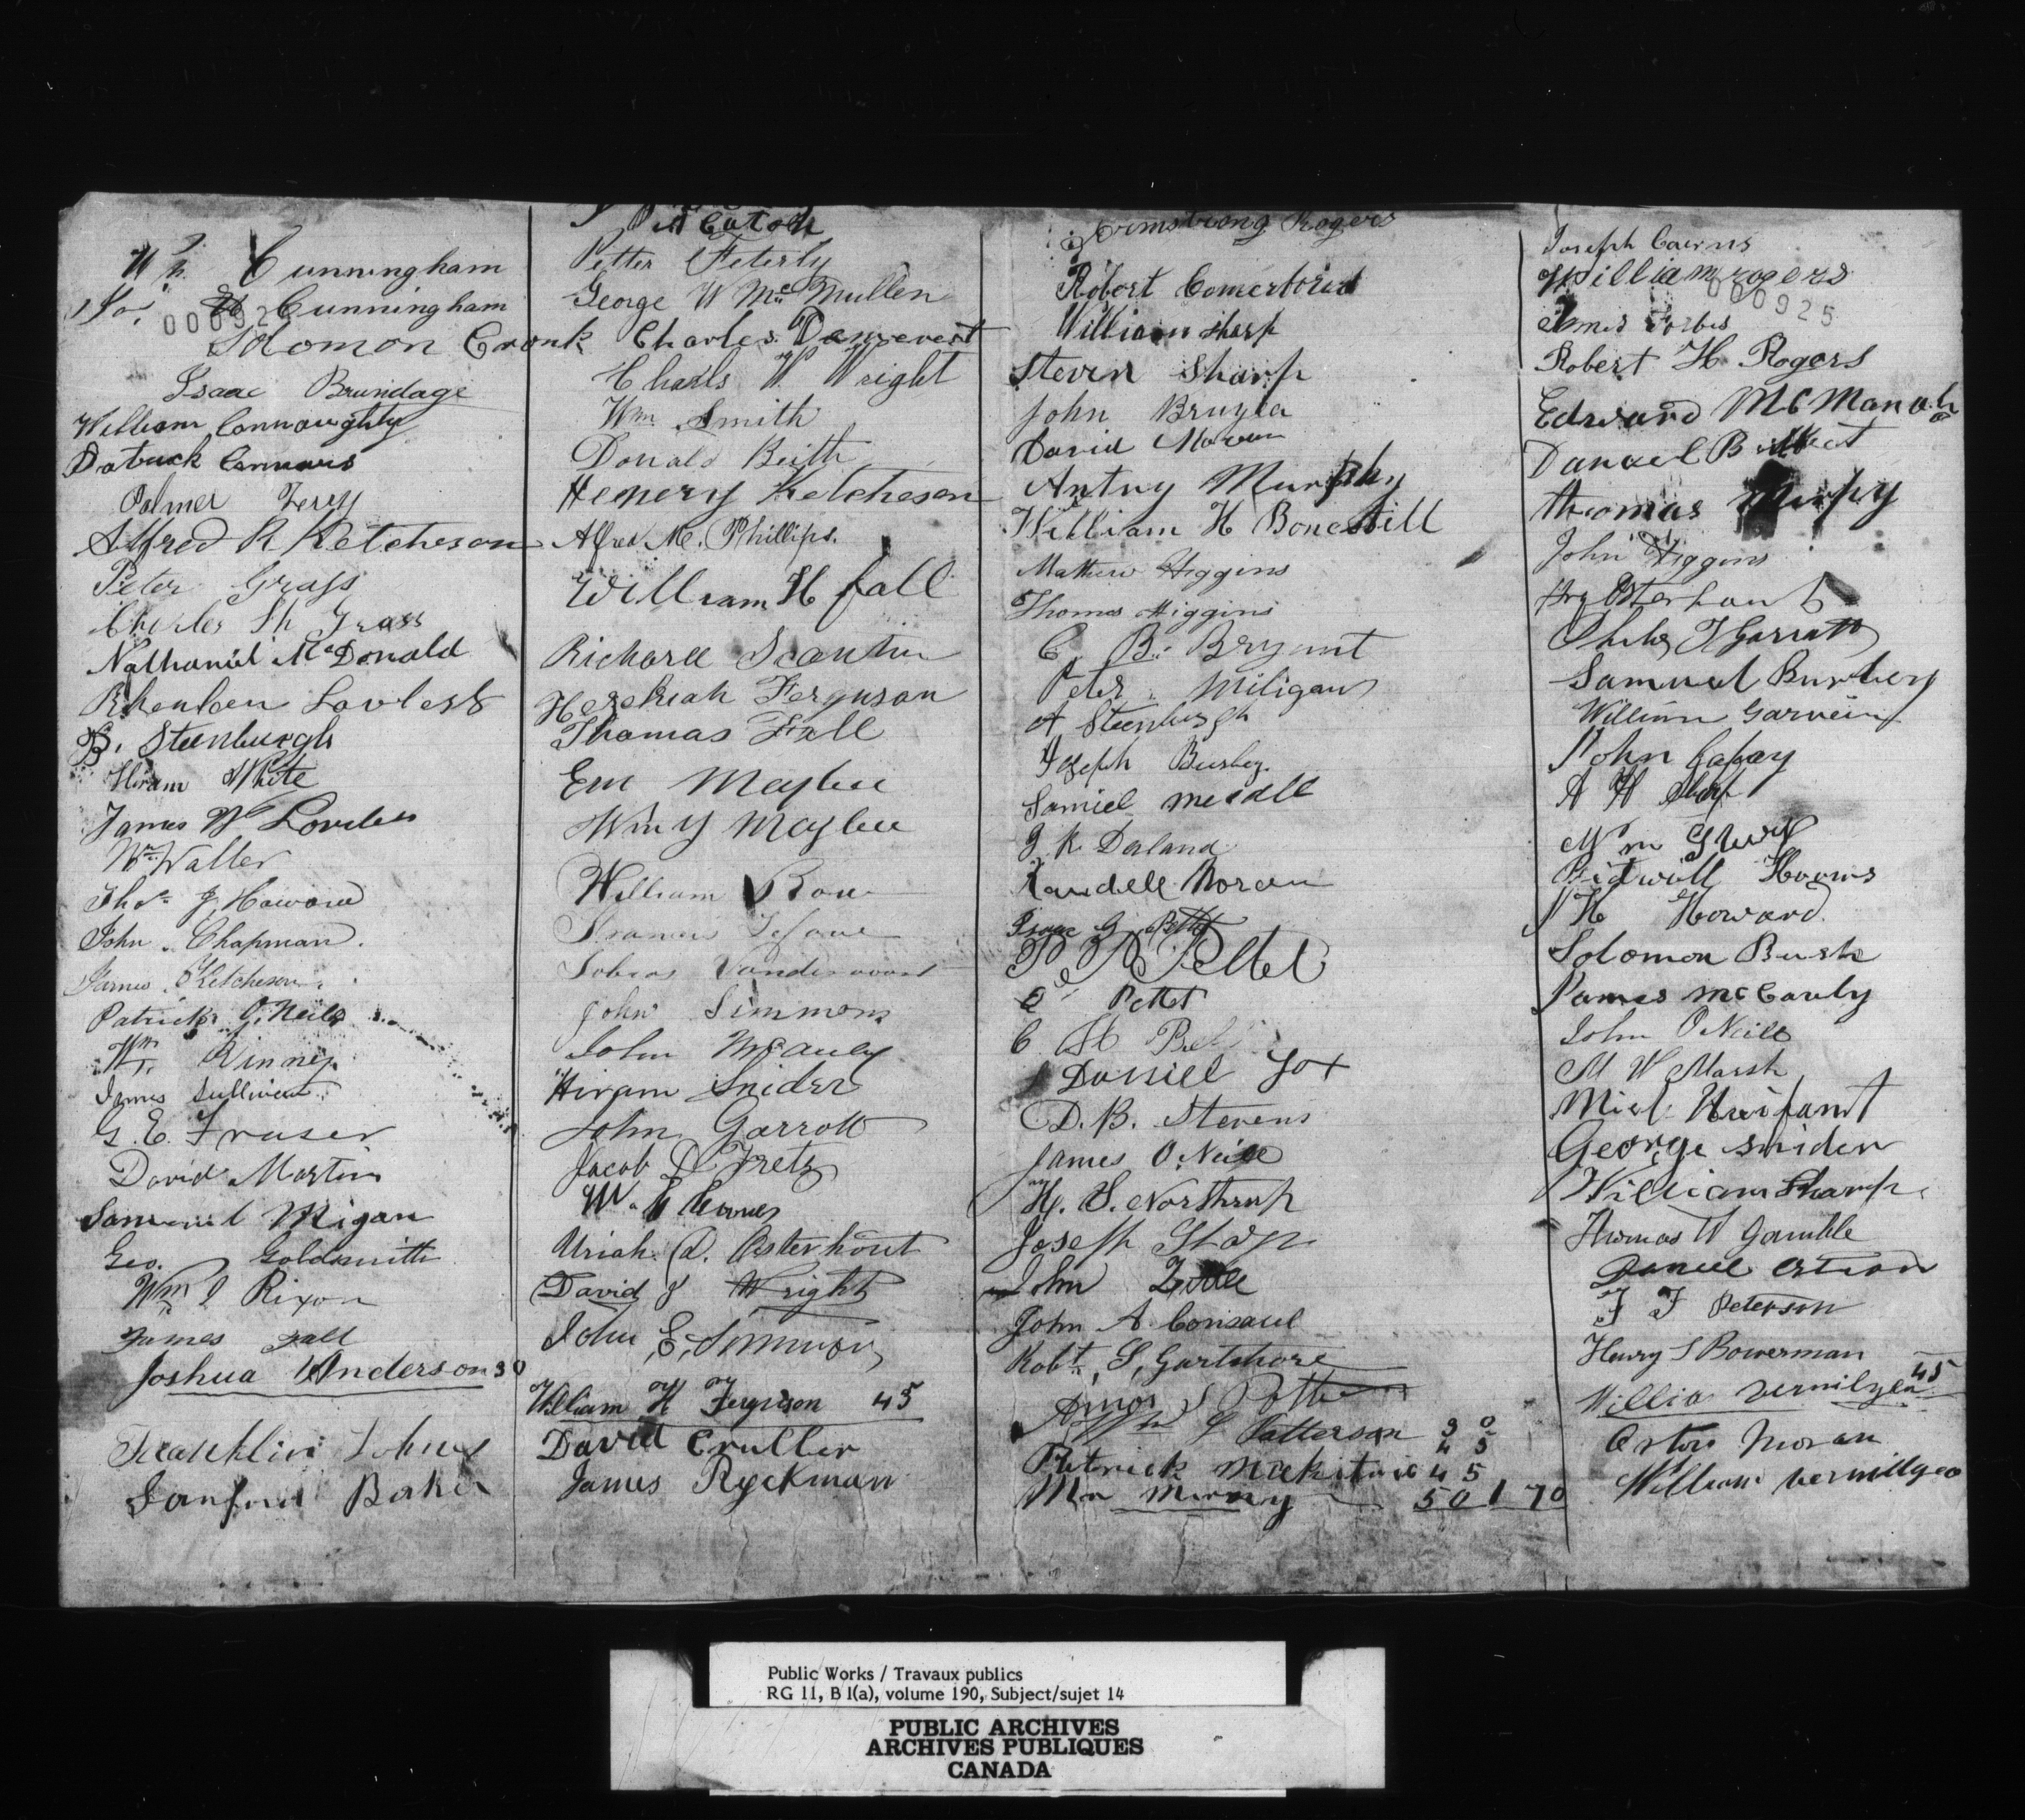 Wm Cunningham
Jo. Cunningham
Solomon Cronk
Isaac Brundage
William Connaughty
Patrick Connors
Palmer Terry
Alfred R Ketcheson
Peter Grass
Charles Sh Grass
Nathaniel McDonald
Rheuben Lovless
B. Steenburgh
Hiram White
James W Loveless
Wm Waller
Thos J. Howard
John Chapman.
James Ketcheson
Patrick O'Neile
Wm Kinney
James Sullivan
G. E. Fraser
David Martin
Samuel Migan
Geo. Goldsmith
Wm J Rixon
James Fall
Joshua Anderson 30
Franklin Johns
Sanford Baker
Eaton
Petter Feterly
George W McMullen
Charles Demerest
Charls W Wright
Wm Smith
Donald Beith
Henery Ketcheson
Alfred Mc. Phillips.
William H fall
Richard Scantlin
Hezekiah Ferguson
Thomas Fall
Em Maybee
Wm Y Maybee
William Row
Francis
Tobias Vandervoort
John Simmons
John McCauley
Hiram Snider
John Garrott
Jacob D Fretz
W.
Uriah D. Osterhout
David J Wright
John E. Simmons
William H Ferguson 45
David Cruller
James Ryckman
Armstrong Rogers
Robert Comerford
William Sharp
Steven Sharp
John Bruyea
David Moran
Antny Murphy
William H Bonesteill
Mathew Higgins
Thomas Higgins
C. B. Bryant
Peter Miligan
A Steenburgh
Joseph Busby.
Samiel
J K Deland
Randell Moran
Isaac G. Pettet
P R Pettet
E Pettet
C H
Daniel Fox
D. B. Stevens
James O. Neill
H. S. Northrup
Joseph Sharp
John
John A. Consaul
Robt. S, Gartshore
Amos S Potter
Wm S Patterson 30
Patrick McKitric 45 45
Wm Murny 50 170
Joseph Cairns
William rogers
000925
James Forbes
Robert H Rogers
Edward McManah
Danael
thomas Murpy
John Higgins
Osterhout
Charles T Garrutt
Samuel Burley
William Garvein
John
A H Sharp
Wm
Ridwell Hooms
H Howard.
Solomon Bush
James McCauly
John O'Neill
M W Marsh
George Snider
William Sharp.
Thomas W Gamble
Daniel
F F Peterson
Henry S Bowerman
45
Willia vermilyea
Orton Moran
William vermilyea
Public Works / Travaux publics
RG 11, B 1(a), volume 190, Subject/sujet 14
PUBLIC ARCHIVES
ARCHIVES PUBLIQUES
CANADA